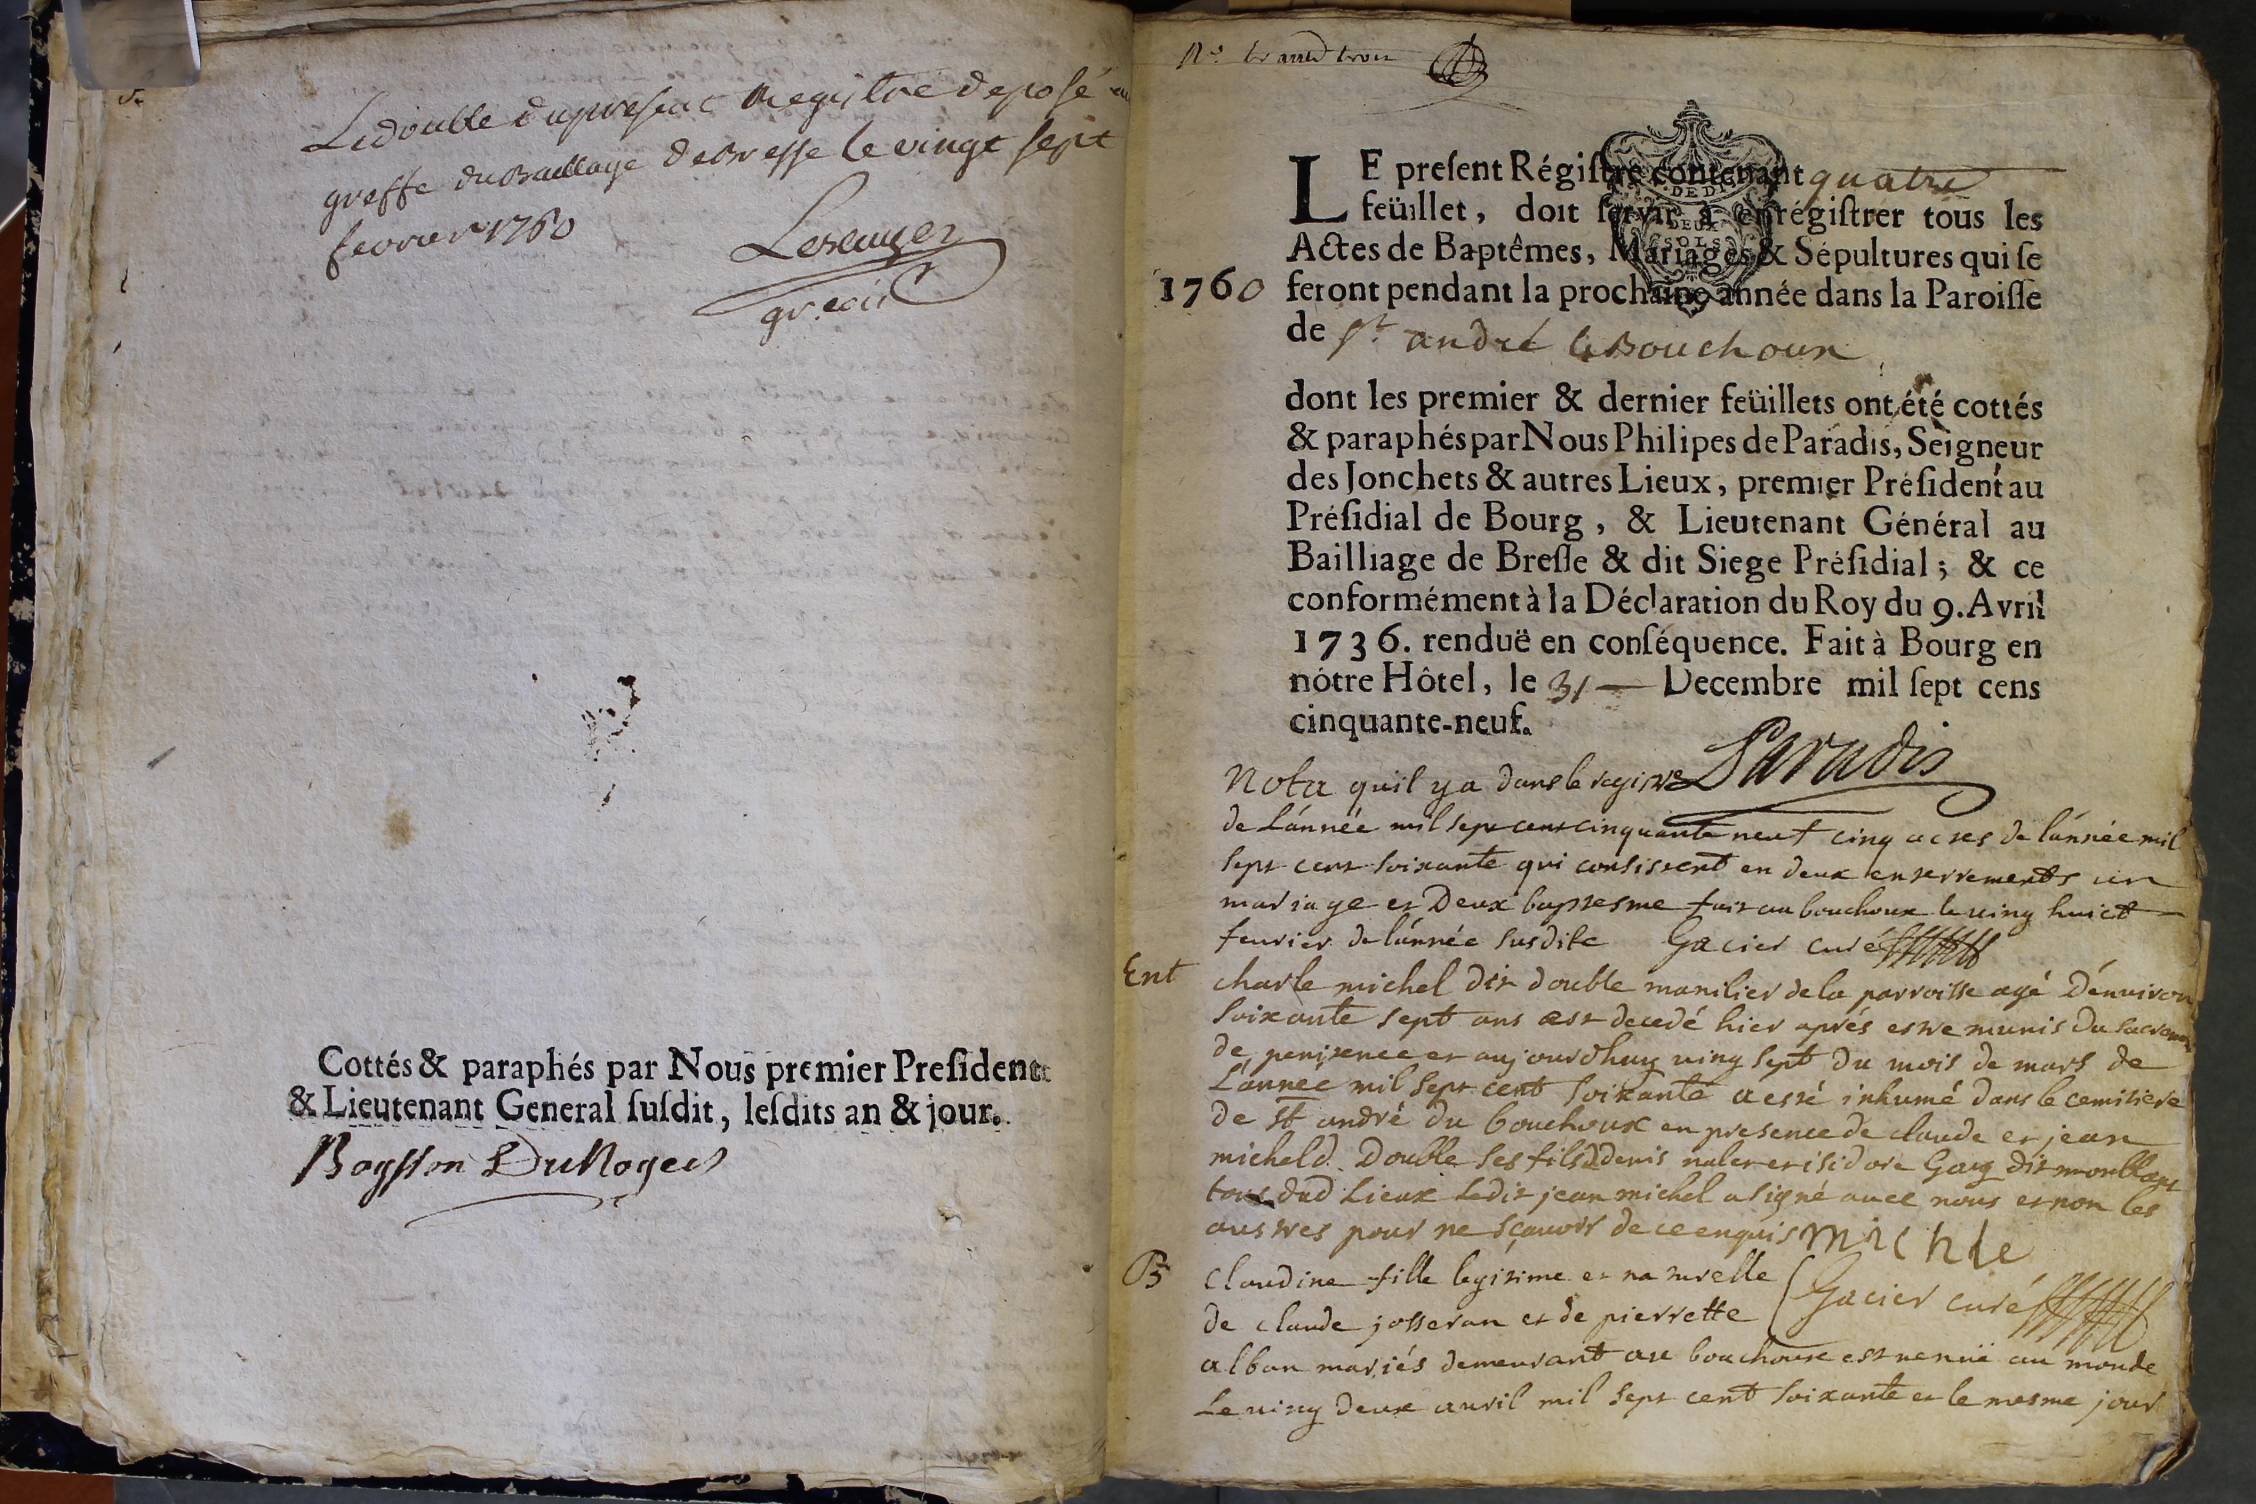 Le double du present Registre deposé au
greffe du Bailliage de Bresse le vingt sept
fevrier 1760
Cottés & paraphés par Nous premier Preſident
& Lieutenant General ſuſdit, leſdits an & jour.
N.º trante trois
LE preſent Régiſtre contenant quatre
feüillet, doit ſervir à enrégiſtrer tous les
Actes de Baptêmes, Mariages & Sépultures qui ſe
1760 feront pendant la prochaine année dans la Paroiſſe
de St. andré le Bouchoux
DEUX
SOLS
dont les premier & dernier feüillets ont été cottés
& paraphés par Nous Philipes de Paradis, Seigneur
des Jonchets & autres Lieux, premier Préſident au
Préſidial de Bourg, & Lieutenant Général au
Bailliage de Breſſe & dit Siege Préſidial; & ce
conformément à la Déclaration du Roy du 9. Avril
1736. renduë en conſéquence. Fait à Bourg en
nôtre Hôtel, le 31 — Decembre mil ſept cens
cinquante-neuf.
Paradis
Nota quil y a dans le registre
de Lánnée mil sept cent cinquante neuf cinq actes de lánnée mil
sept cent soixante qui consistent en deux enterrements un
mariage et Deux baptesme fait au bouchoux le ving huict
feurier de lánnée susdite Gacier curé
Ent charle michel dit double manilier de la parroisse agé Dénuiron
soixante sept ans est decedé hier aprés estre munis du sacrement
de penitence et aujourdhuy ving sept du mois de mars de
Lánneé mil sept cent soixante a esté inhumé dans le cemitiere
de st andré du bouchoux en presence de claude et jean
michel d. Double ses fils denis et isidore Gay dit montblanc
tous dud Lieux Ledit jean michel a signé auec nous et non les
austres pour ne sçauoir de ce enquis michle
B claudine fille legitime et naturelle
de claude josseran et de pierrette Gacier curé
alban mariés demeurant au bouchoux est nenuë au monde
Le uing deux auril mil sept cent soixante et le mesme jour